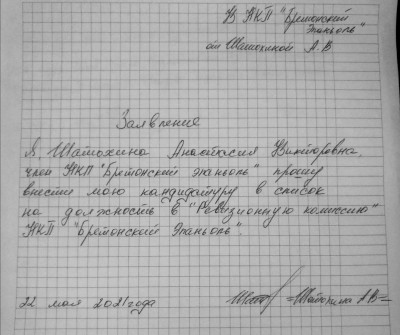 В НКП "Бретонский
Эпаньоль"
от Шатохиной А.В
Заявление
Я, Шатохина Анастасия Викторовна,
член НКП "Бретонский эпаньоль" прошу
внести мою кандидатуру в список
на должность в "Ревизионную комиссию"
НКП "Бретонский Эпаньоль".
22 мая 2021 года
=Шатохина АВ=